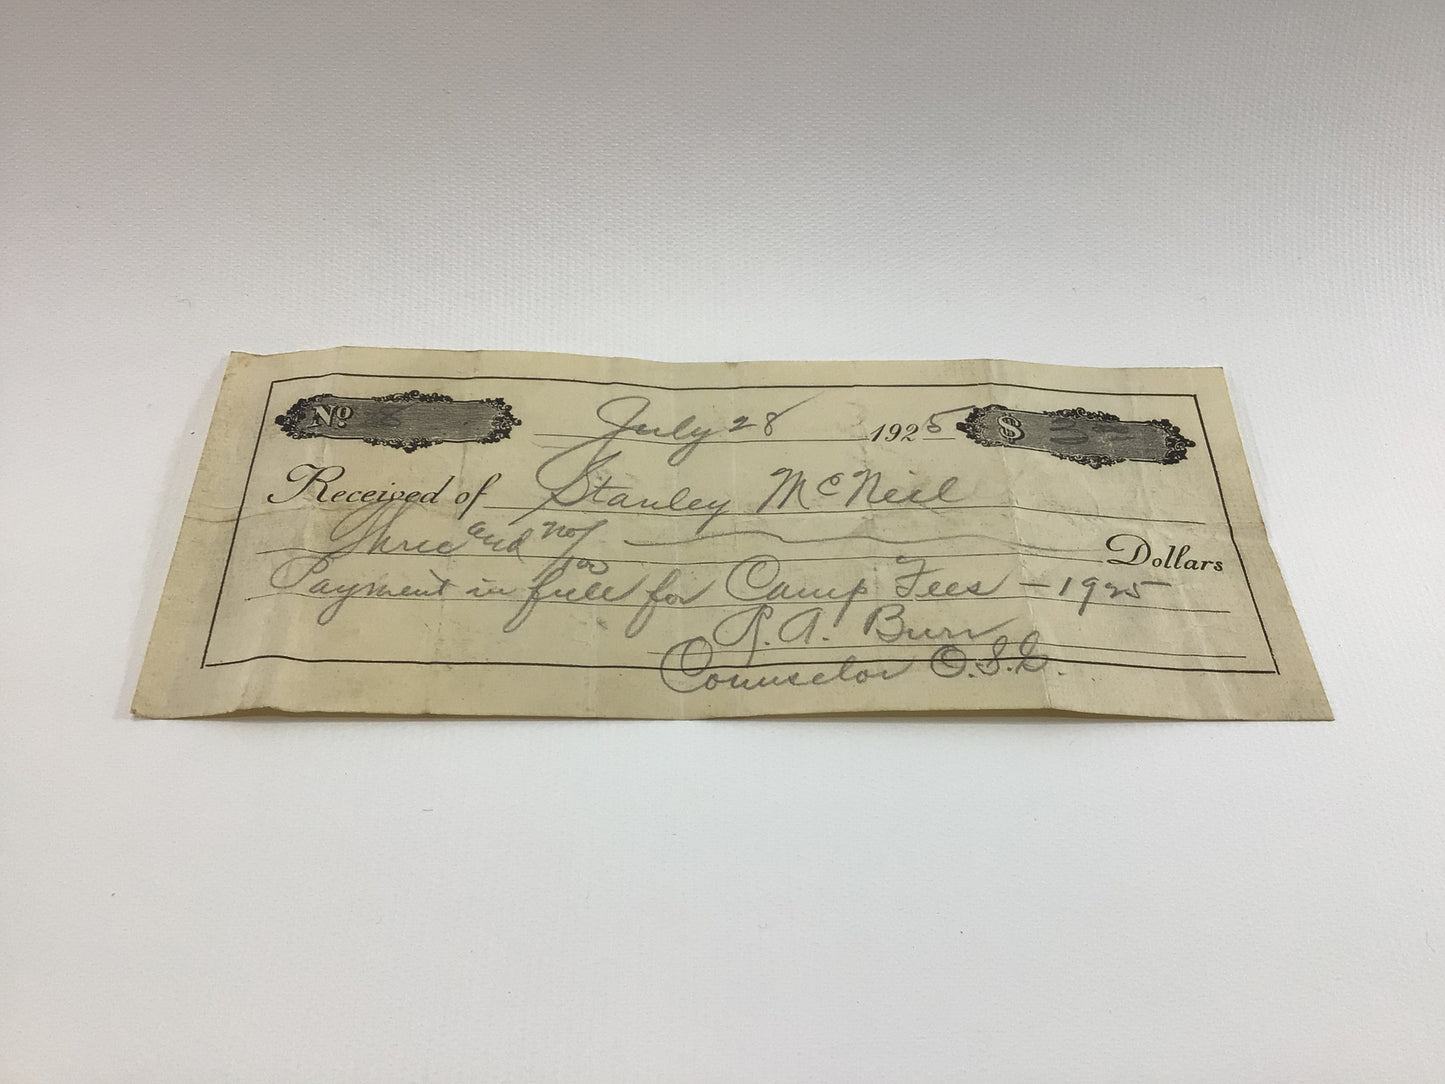 No 8 July 28 1925 $ 3 00
Received of Stanley McNeil
Three and no/100 Dollars
Payment in full for Camp Fees - 1925
R. A. Burr
Counselor O.S.G.